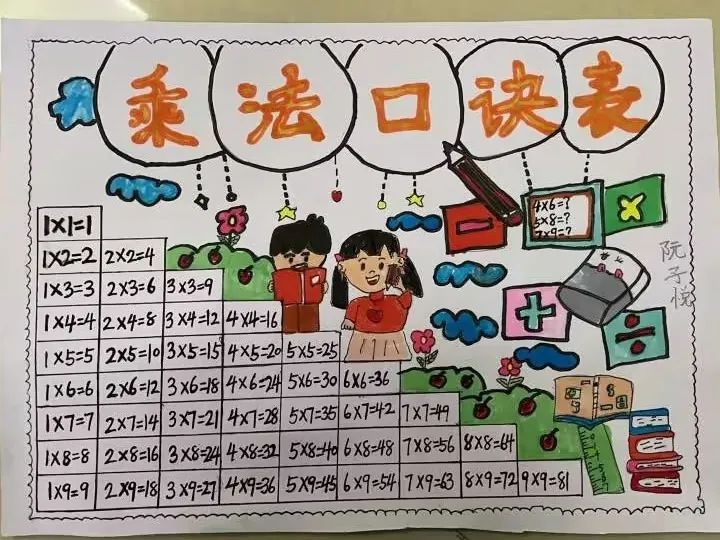 乘法口诀表
4×6=?
5×8=?
7×9=?
×
-
+
÷
阮子悦
1×1=1
1×2=2 2×2=4
1×3=3 2×3=6 3×3=9
1×4=4 2×4=8 3×4=12 4×4=16
1×5=5 2×5=10 3×5=15 4×5=20 5×5=25
1×6=6 2×6=12 3×6=18 4×6=24 5×6=30 6×6=36
1×7=7 2×7=14 3×7=21 4×7=28 5×7=35 6×7=42 7×7=49
1×8=8 2×8=16 3×8=24 4×8=32 5×8=40 6×8=48 7×8=56 8×8=64
1×9=9 2×9=18 3×9=27 4×9=36 5×9=45 6×9=54 7×9=63 8×9=72 9×9=81